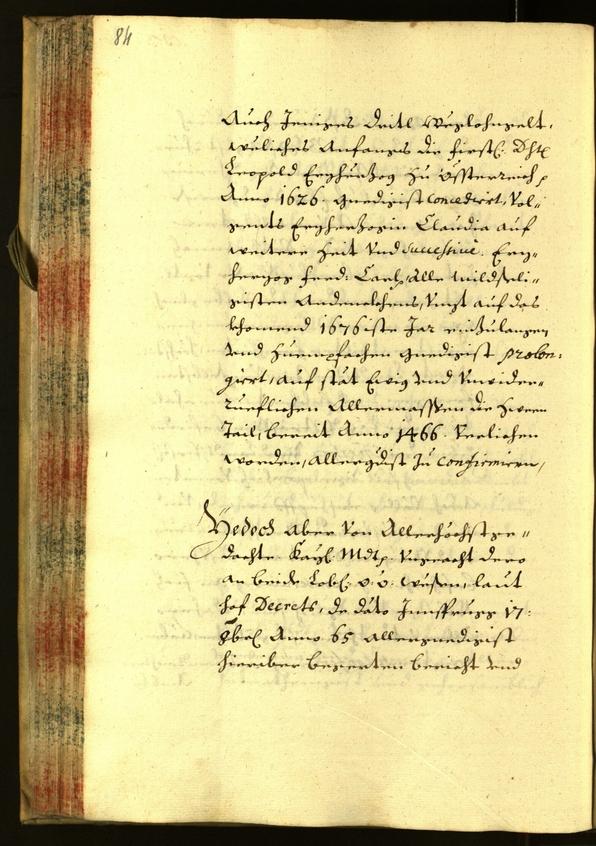 84
Auch Jeniges dritl Weglohngelt,
weliches Anfangs die fürstl: Dhtl
Leopold Erzherzog zu Össterreich,
Anno 1626. gnedigist concedirt, Vol„
gents Erzherzogin Claudia auf
weitere Zeit Vnd successivè. Erz„
herzog Ferd: Carl, Alle mildseli„
gisten Andenckhens, Vnzt auf das
khomend 1676iste Jar einzulangen
vnd zuempfachen gnedigist prolon:
girt, auf stät Ewig vnd Vnwider„
rueflichen Allermassen die zween
Tail, bereit Anno 1466. Verlichen
worden, allergdist zu confirmiren,
Jedoch aber Von Allerhöchstge„
dachte Kayl: Mdt: Vngeacht dero
an beide Lobl: o:ö: wesen, laut
hof Decrets, de dato Innsprugg 17:
9bel Anno 65 allergnedigist
hierüber begerten bericht vnd